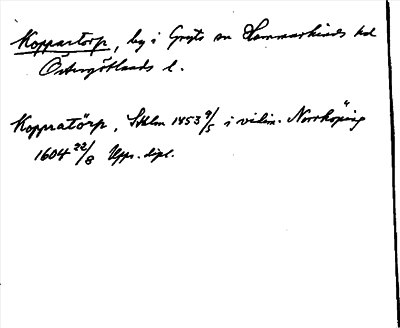 Koppartorp, by i Gryts sn Hammarkinds hd
Östergötlands l.
Kopratörp, Sthlm 1453 9/5 i vidim. Norrköping
1604 22/8 Upps. dipl.